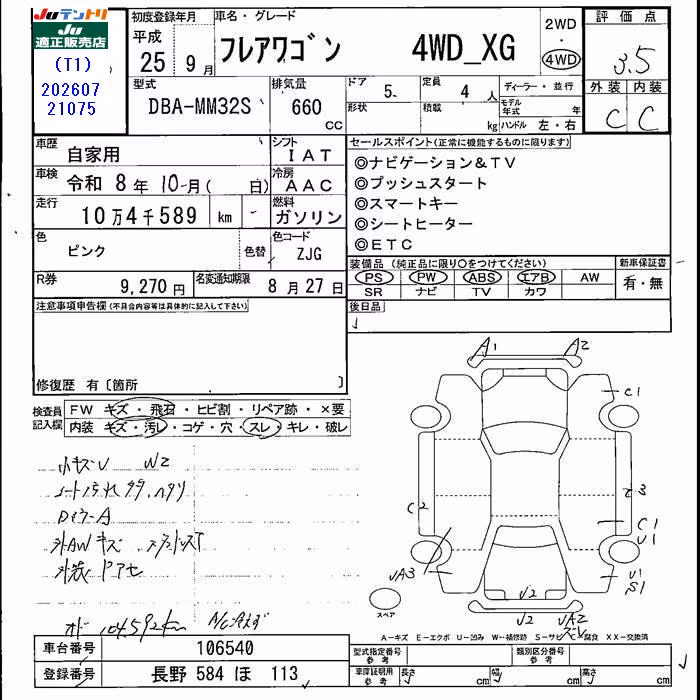 Juテントリ
Ju
適正販売店
(T1)
202607
21075
初度登録年月
平成
25 9月
車名・グレード
フレアワゴン 4WD_XG
2WD
・
4WD
評価点
3.5
外装 内装
C C
型式
DBA-MM32S
排気量
660
CC
ドア
5
定員
4人
形状
積載
kg
ディーラー・並行
モデル年式 年
ハンドル 左・右
車歴
自家用
シフト
IAT
車検
令和 8年 10月( 日)
冷房
AAC
走行
10万4千589 km
燃料
ガソリン
色
ピンク
色替
色コード
ZJG
R券
9,270円
名変通知期限
8月27日
セールスポイント(正常に機能するものに限ります)
◎ナビゲーション&TV
◎プッシュスタート
◎スマートキー
◎シートヒーター
◎ETC
装備品(純正品に限り○をつけてください)
PS PW ABS エアB AW
SR ナビ TV カワ
新車保証書
有・無
後日品
注意事項申告欄(不具合内容等は具体的に記入して下さい)
修復歴 有〔箇所 〕
検査員
記入欄
FW キズ・飛石・ヒビ割・リペア跡・×要
内装 キズ・汚レ・コゲ・穴・スレ・キレ・破レ
小キズU W2
外AWキズ
104592km
A1 A2
C1
C2
C1
U1
UA3
U1
S1
U2
U2
UA2
スペア
A-キズ E-エクボ U-凹み W-補修跡 S-サビ C-腐食 XX-交換済
車台番号
106540
登録番号
長野 584 ほ 113
型式指定番号
参考
類別区分番号
参考
車庫証明用
参考
長さ cm
幅 cm
高さ cm